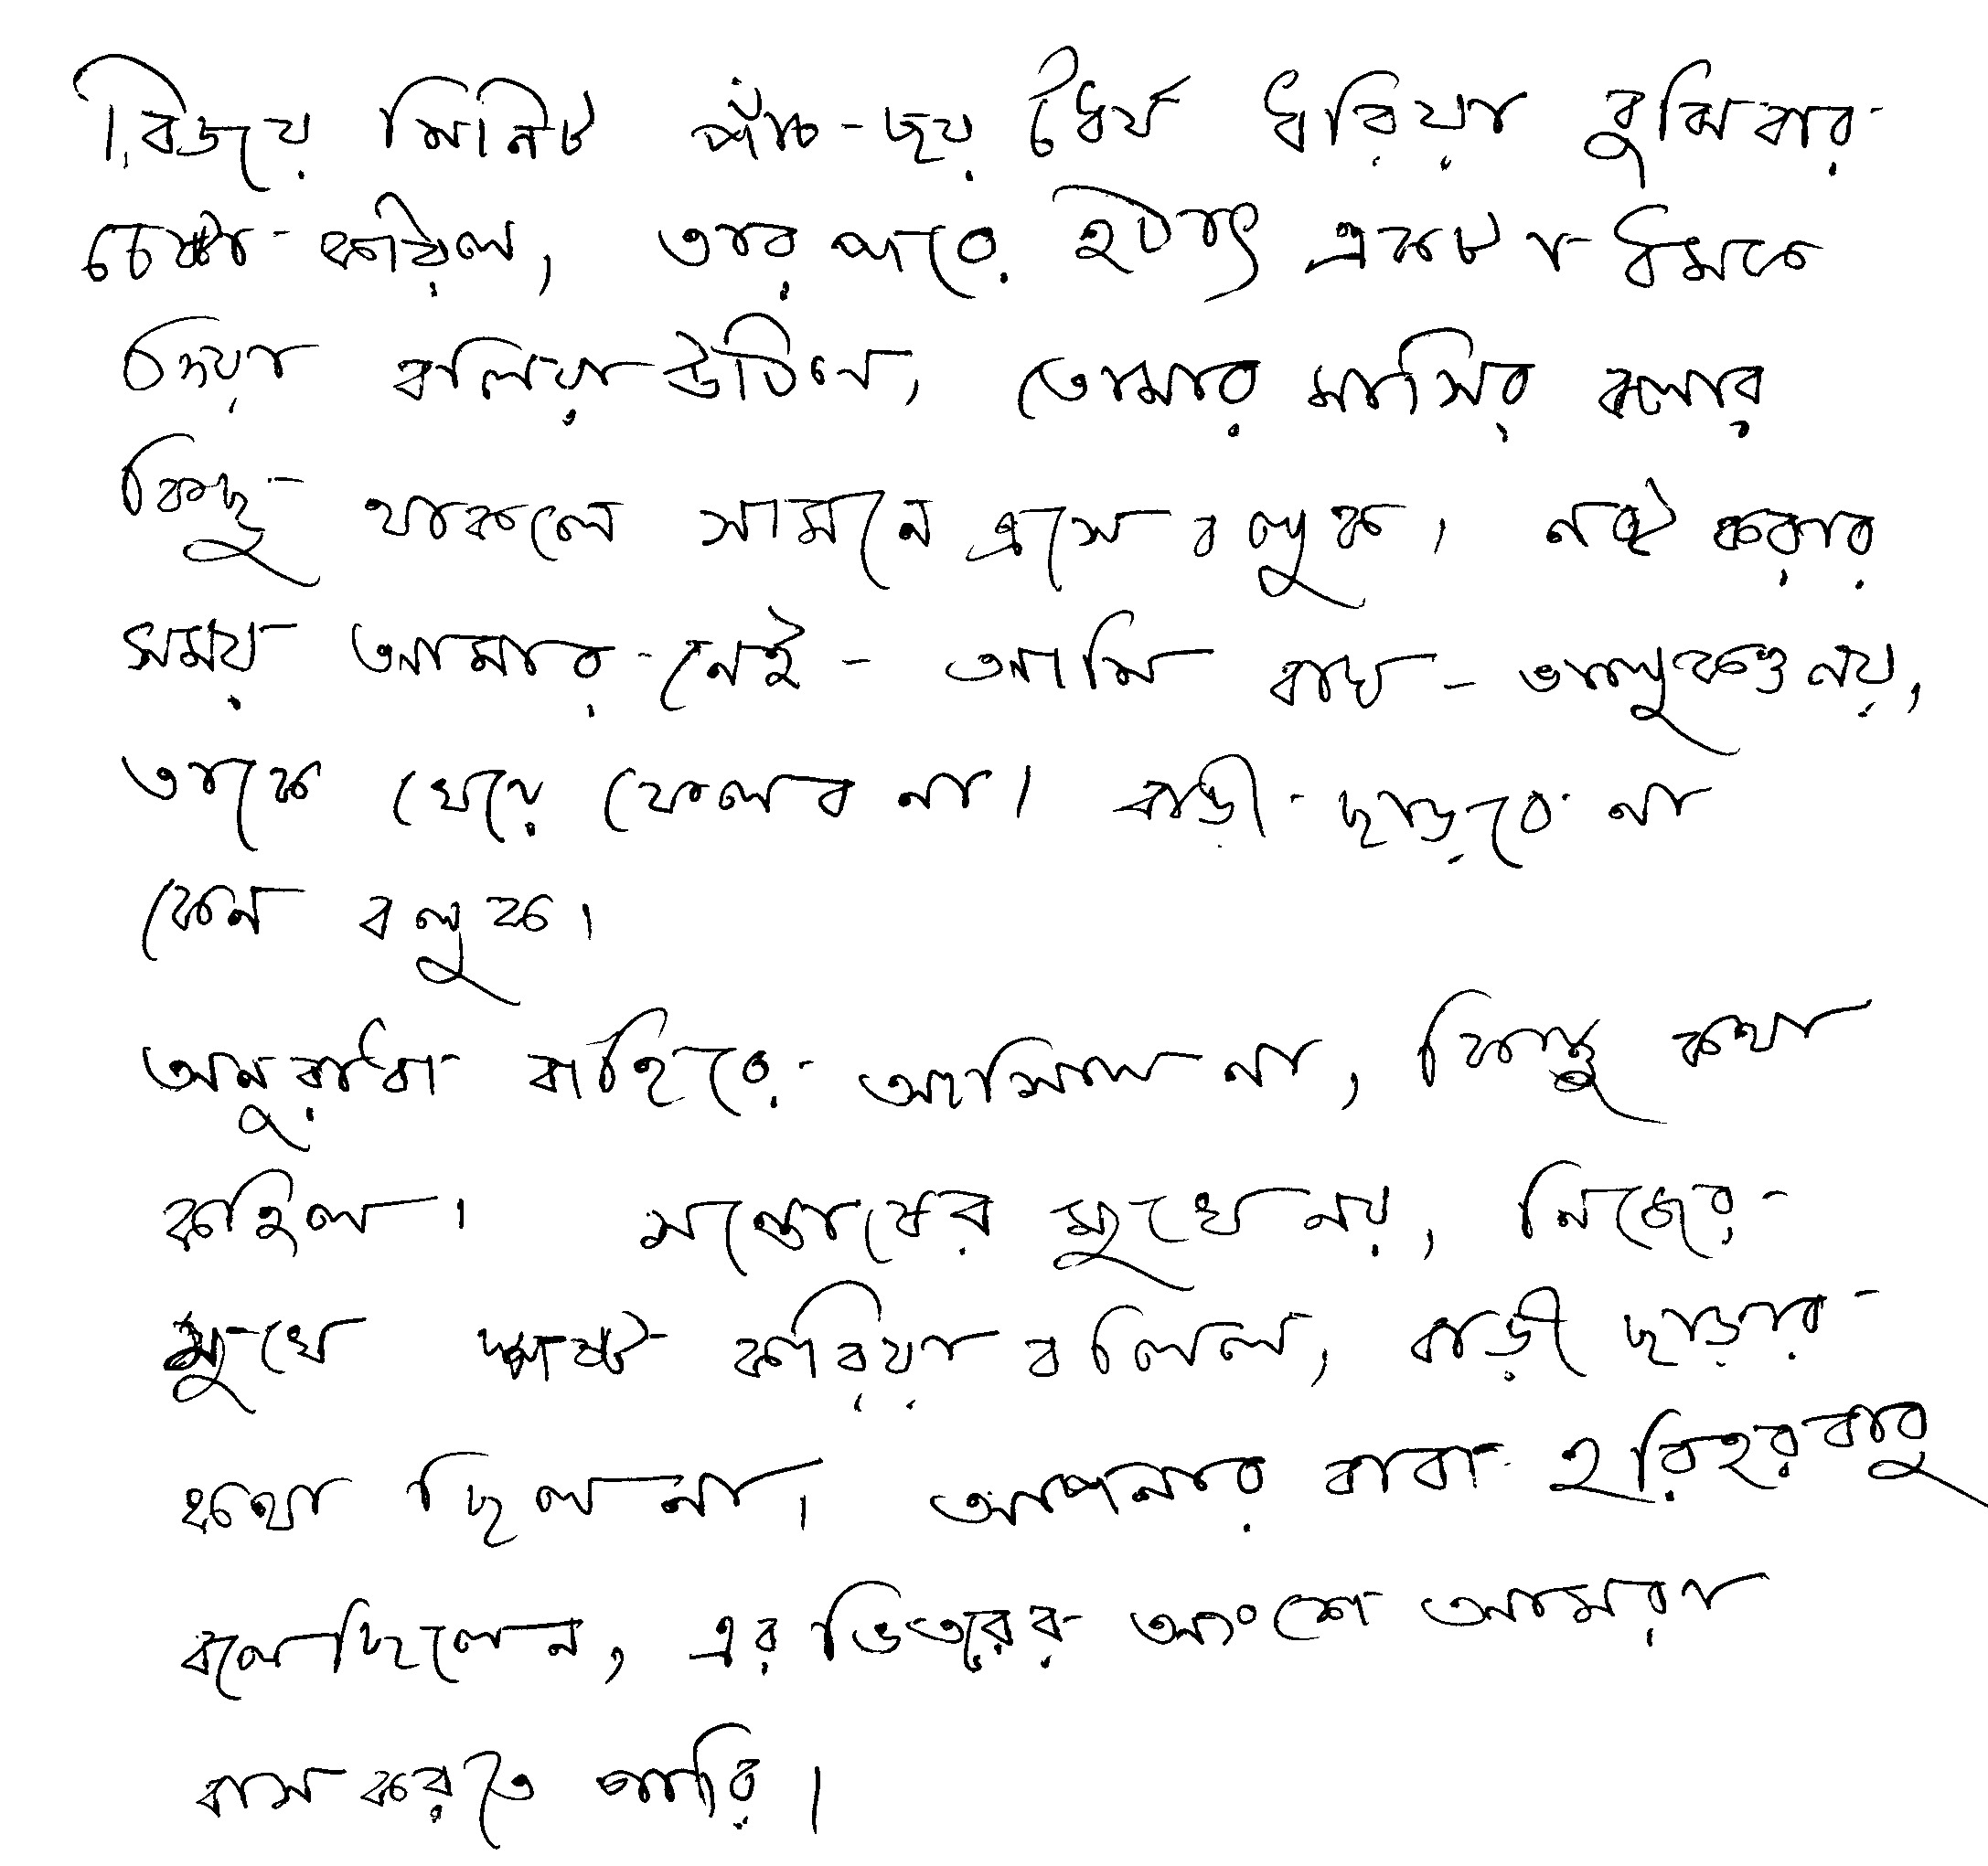 বিজয় মিনিট পাঁচ-ছয় ধৈর্য ধরিয়া বুঝিবার
চেষ্টা করিল, তার পরে হঠাৎ একটা ধমকে
দিয়া বলিয়া উঠিল, তোমার মাসির বলার
কিছু থাকলে সামনে এসে বলুক। নষ্ট করার
সময় আমার নেই - আমি বাঘ - ভালুকও নয়,
তাকে খেয়ে ফেলব না। বাড়ী ছাড়বে না
কেন বলুক।
অনুরাধা বাহিরে আসিল না, কিন্তু কথা
কহিল। সন্তোষের মুখে নয়, নিজের
মুখে স্পষ্ট করিয়া বলিল, বাড়ী ছাড়ার
কথা ছিল না। আপনার বাবা হরিহরবাবু
বলেছিলেন, এর ভিতরের অংশে আমরা
বাস করতে পারি।